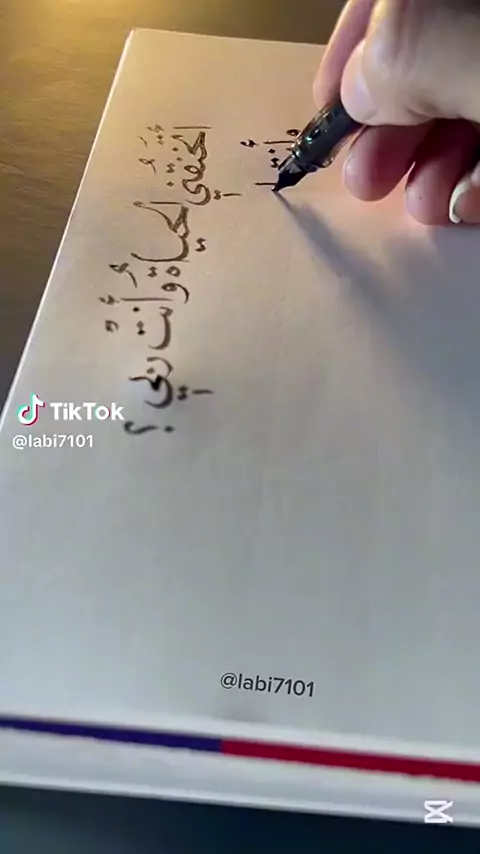 أتخنقني الحياة وأنت ربي؟
TikTok
@labi7101
@labi7101